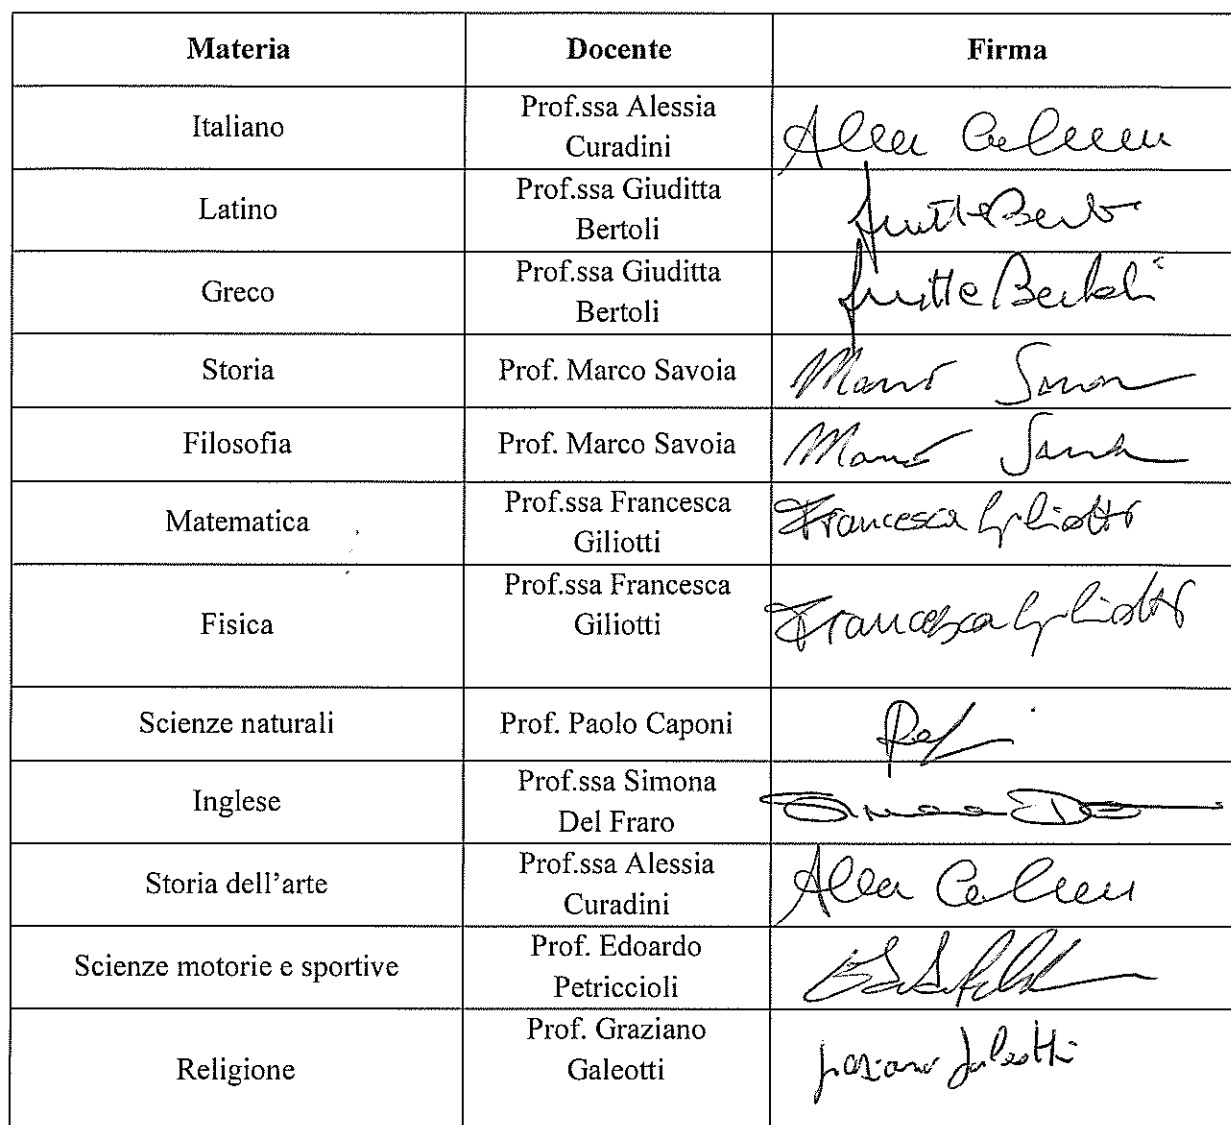 Materia Docente Firma
Italiano Prof.ssa Alessia
Curadini
Latino Prof.ssa Giuditta
Bertoli
Greco Prof.ssa Giuditta
Bertoli
Storia Prof. Marco Savoia
Filosofia Prof. Marco Savoia
Matematica Prof.ssa Francesca
Giliotti Francesca Giliotti
Fisica Prof.ssa Francesca
Giliotti Francesca Giliotti
Scienze naturali Prof. Paolo Caponi
Inglese Prof.ssa Simona
Del Fraro
Storia dell'arte Prof.ssa Alessia
Curadini
Scienze motorie e sportive Prof. Edoardo
Petriccioli
Religione Prof. Graziano
Galeotti Graziano Galeotti